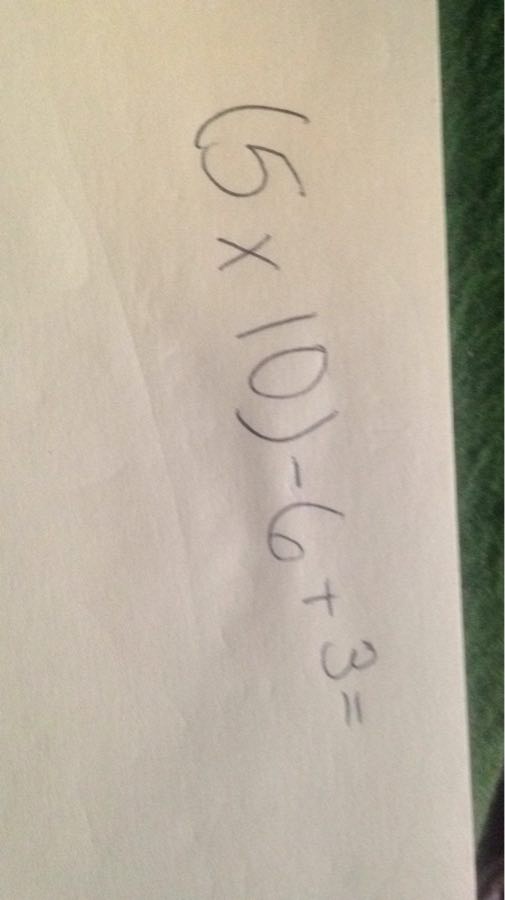 (5 x 10) - 6 + 3 =